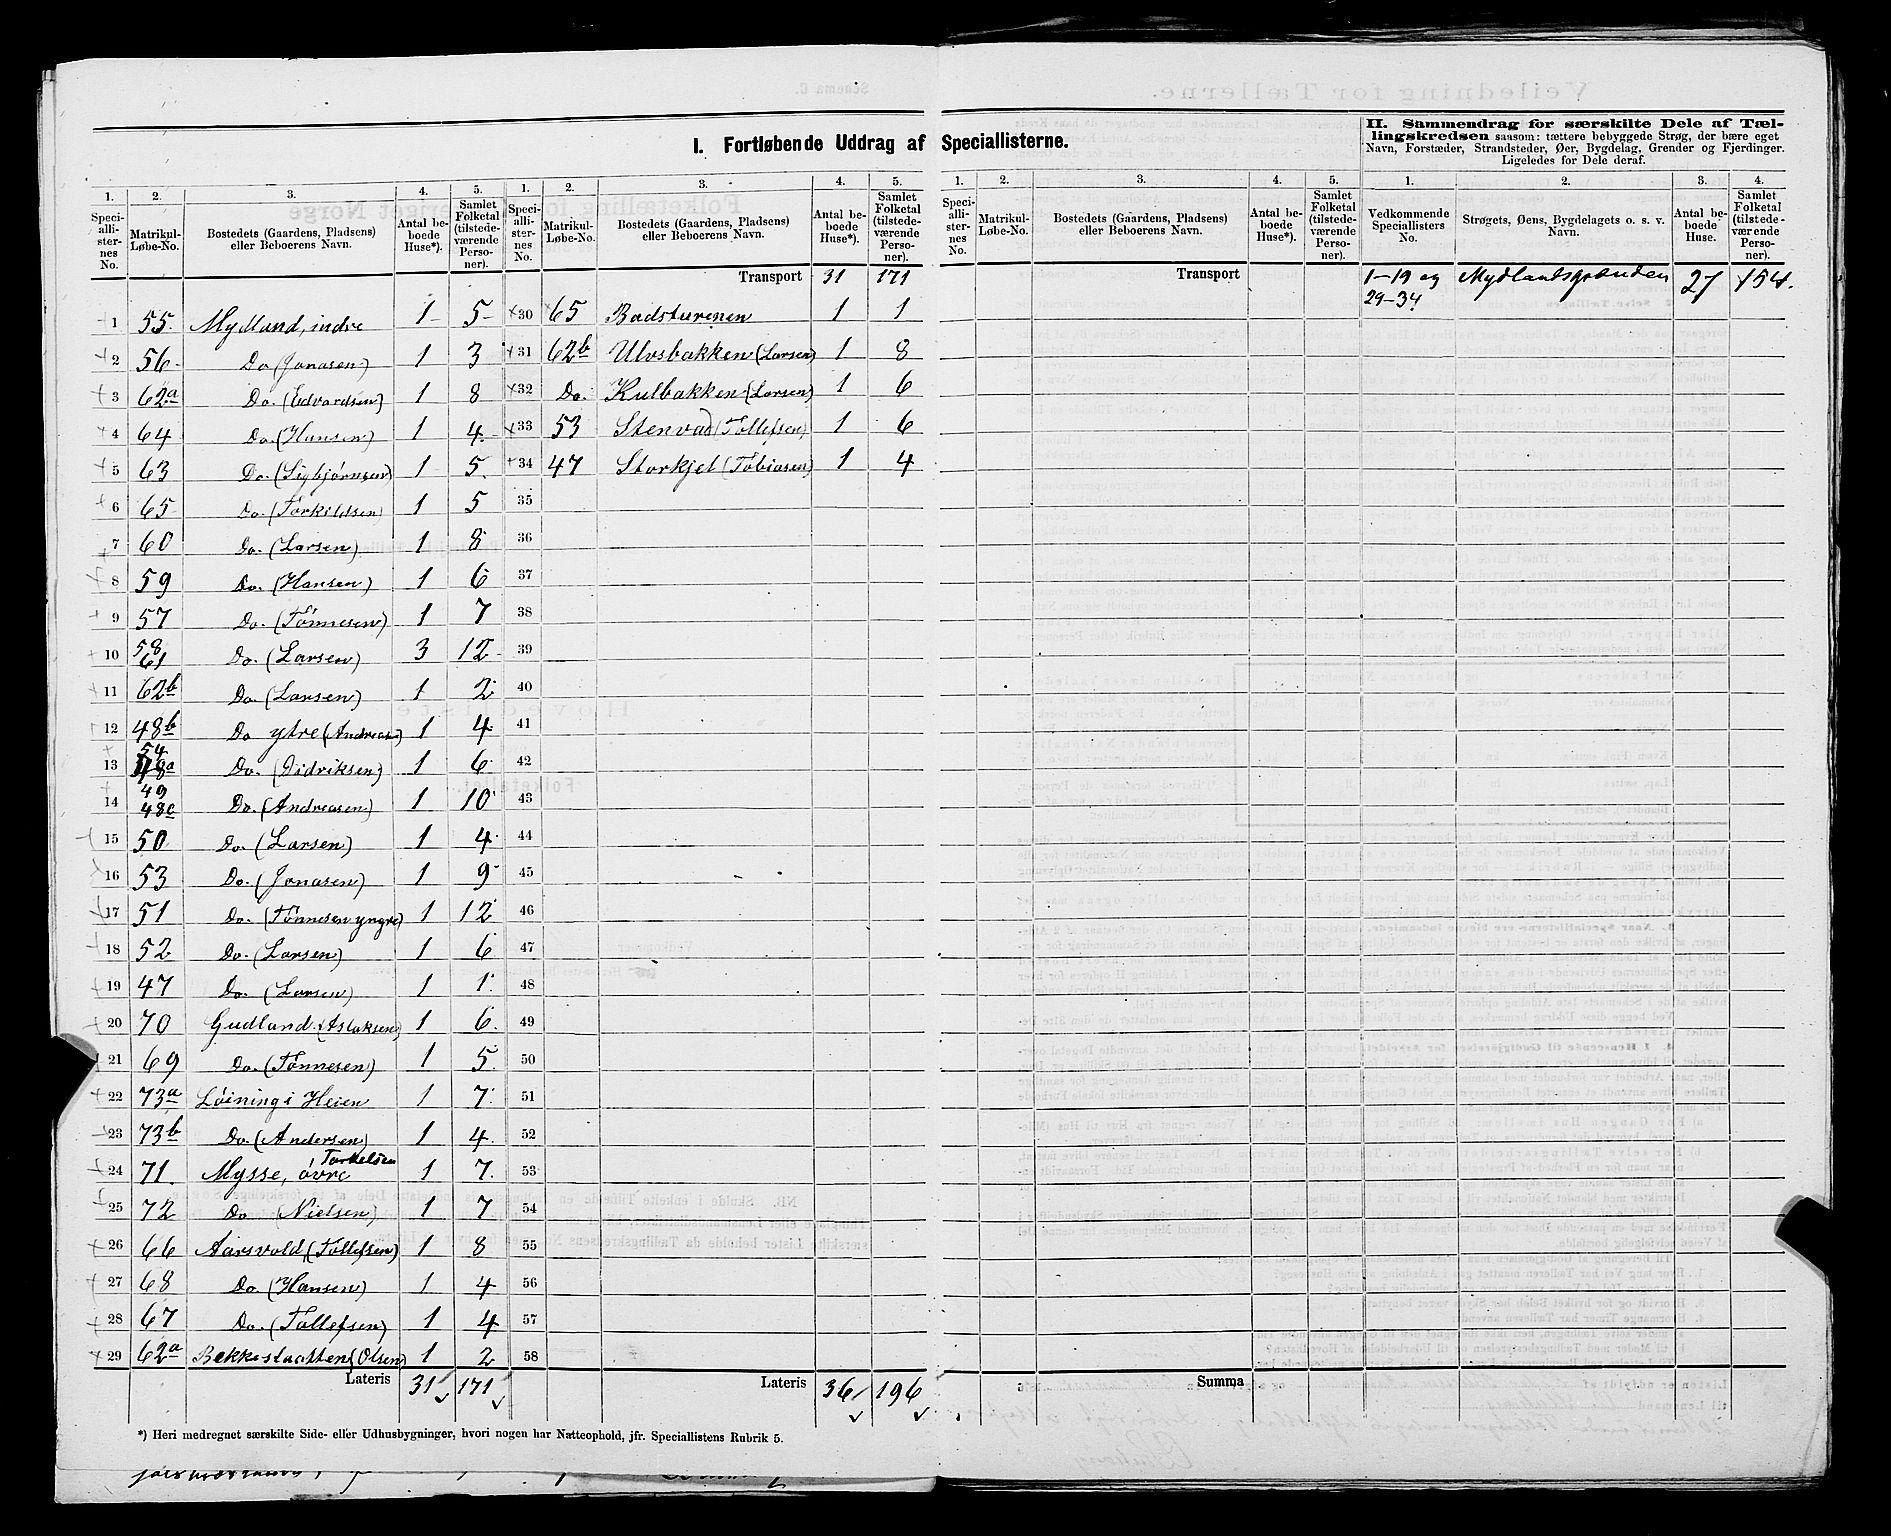 I. Fortløbende Uddrag af Speciallisterne.
1. 2. 3. 4. 5. 1. 2. 3. 4. 5.
Speciallisternes No. Matrikul-Løbe-No. Bostedets (Gaardens, Pladsens) eller Beboerens Navn. Antal beboede Huse*). Samlet Folketal (tilstedeværende Personer).
Speciallisternes No. Matrikul-Løbe-No. Bostedets (Gaardens, Pladsens) eller Beboerens Navn. Antal beboede Huse*). Samlet Folketal (tilstedeværende Personer).
1 55. Mydland, indre 1 5
2 56. Do (Jonasen) 1 3
3 62a Do. (Edvardsen) 1 8
4 64 Do. (Hansen) 1 4
5 63 Do. (Sigbjørnsen) 1 5
6 65 Do. (Torkildsen) 1 5
7 60 Do. (Larsen) 1 8
8 59 Do. (Hansen) 1 6
9 57 Do. (Tønnesen) 1 7
10 58 61 Do. (Larsen) 3 12
11 62b Do. (Larsen) 1 2
12 48b Do ytre (Andreas) 1 4
13 54 48a Do. (Didriksen) 1 6
14 49 48c Do. (Andreasen) 1 10
15 50 Do. (Larsen) 1 4
16 53 Do. (Jonasen) 1 9
17 51 Do. (Tønnesen yngre) 1 12
18 52 Do. (Larsen) 1 6
19 47 Do. (Larsen) 1 1
20 70 Gudland (Aslaksen) 1 6
21 69 Do. (Tønnesen) 1 5
22 73a Løining i Heien 1 7
23 73b Do. (Andersen) 1 4
24 71. Mysse, øvre Torkelsen 1 7
25 72 Do (Nielsen) 1 7
26 66 Aarsvold (Tollefsen) 1 8
27 68 Do. (Hansen) 1 4
28 67 Do. (Tollefsen) 1 4
29 62a Bekkestaatten (Olsen) 1 2
Lateris 31 171
Transport 31 171
30 65 Badsturenen 1 1
31 62b Ulvsbakken (Larsen) 1 8
32 Do. Kulbakken (Larsen) 1 6
33 53 Stenvad (Tollefsen) 1 6
34 47 Storkjet (Tobiasen) 1 4
35
36
37
38
39
40
41
42
43
44
45
46
47
48
49
50
51
52
53
54
55
56
57
58
Lateris 36 196
*) Heri medregnet særskilte Side- eller Udhusbygninger, hvori nogen har Natteophold, jfr. Speciallistens Rubrik 5.
1. 2. 3. 4. 5.
Speciallisternes No. Matrikul-Løbe-No. Bostedets (Gaardens, Pladsens) eller Beboerens Navn. Antal beboede Huse*). Samlet Folketal (tilstedeværende Personer).
Transport
Summa
II. Sammendrag for særskilte Dele af Tællingskredsen saasom: tættere bebyggede Strøg, der bære eget
Navn, Forstæder, Strandsteder, Øer, Bygdelag, Grender og Fjerdinger.
Ligeledes for Dele deraf.
1. 2. 3. 4.
Vedkommende Speciallisters No. Strøgets, Øens, Bygdelagets o. s. v. Navn. Antal beboede Huse. Samlet Folketal (tilstedeværende Personer).
1–19 og 29–34 Mydlandsgrænden 27 154.